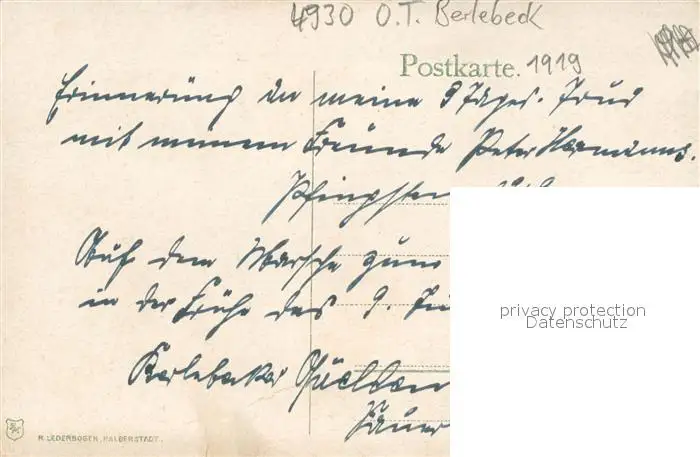 4930 O.T. Berlebeck
Postkarte. 1919
Erinnerung an meine 9 Tages-
mit meinem Freunde Peter Hermanns.
Pfingsten 1919
Auf dem Marsche zum
in der Frühe des 9. Ju
Berlebeker Quellen
privacy protection
Datenschutz
R. LEDERBOGEN, HALBERSTADT.